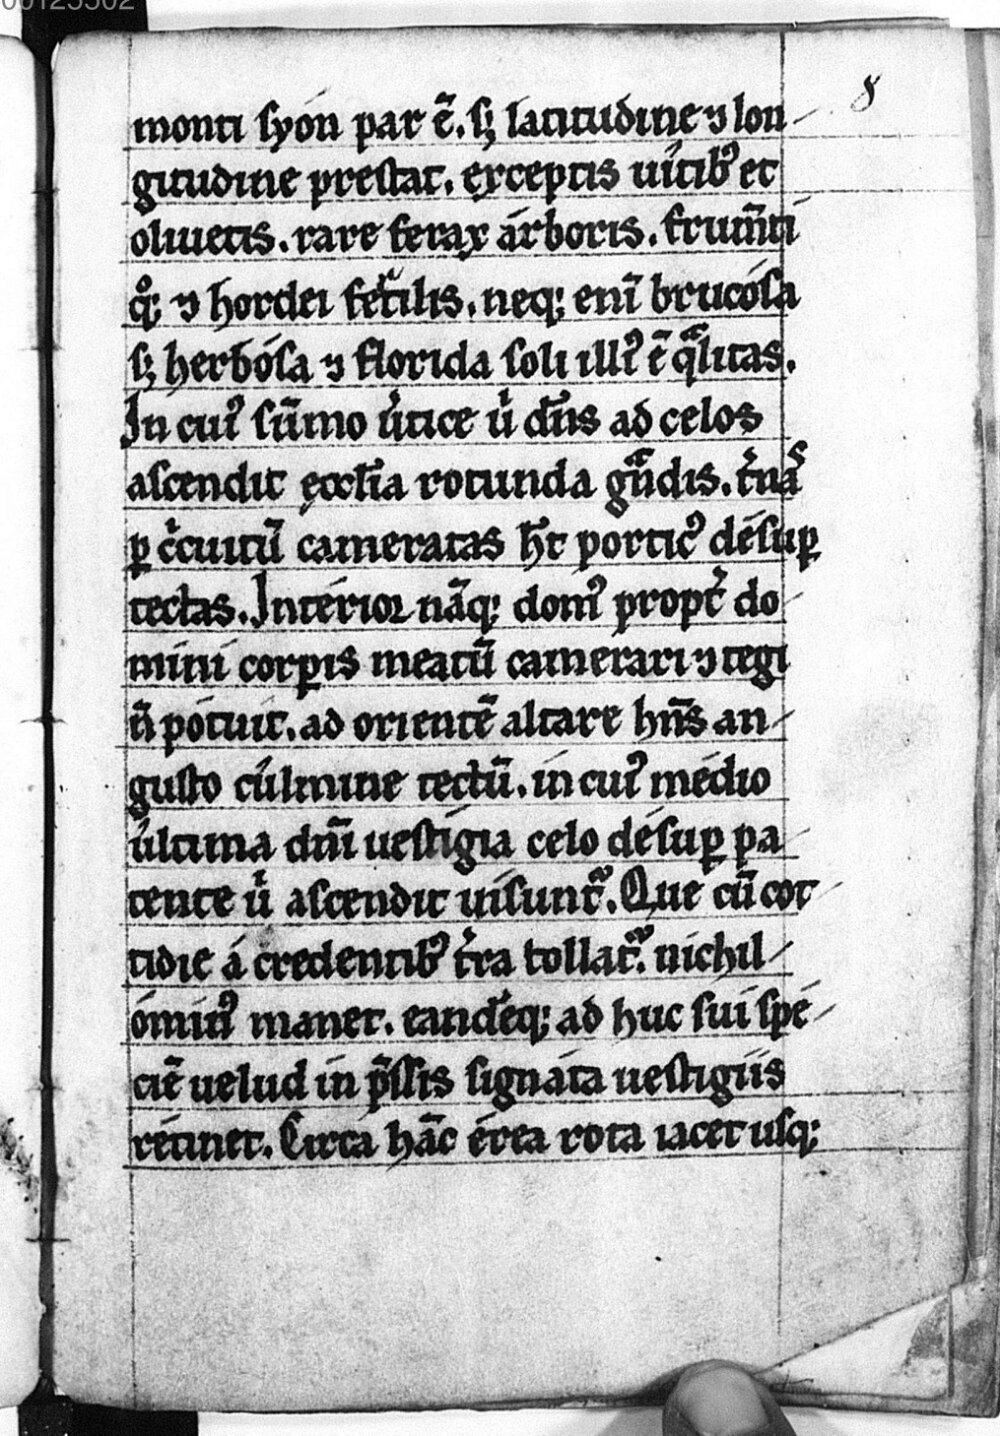 00125502
8
monti syón par ē. sꝫ latitudine ⁊ lon
gitudine prestat. exceptis uítibꝰ et
oliuetis. rare ferax árboris. frum̄ti
qͦꝫ ⁊ hordei fet͛ilis. neqꝫ eni̅ brucósa
sꝫ herbósa ⁊ florida soli illiꝰ ē qᵃlitas.
In cuiꝰ sūmo u͛tice uͥ dn̄s ad celos
ascendit ęccl̄ia rotunda gᵃndis. tͥnaˢ
ꝑ cͥcuitū cameratas ħt porticꝰ désuꝑ
tectas. Intérior nāqꝫ domꝰ propt͛ do
míni corꝑis meatū camerari ⁊ tegi
n̄ pótuit. ad orientē altare hn̄s an
gusto cúlmine tectū. in cuiꝰ médio
última dn̄i uestígia celo désuꝑ pa
tente uͥ ascendit uisuntᷣ. Que cū cot
tidie á credentibꝰ t͛ra tollatᷣ. níchil
ómínꝰ manet. eandēqꝫ ad huc sui spé
ciē uelud in p̄ssis signáta uestigíís
rétinet. Circá hāc érea rota iacet usqꝫ